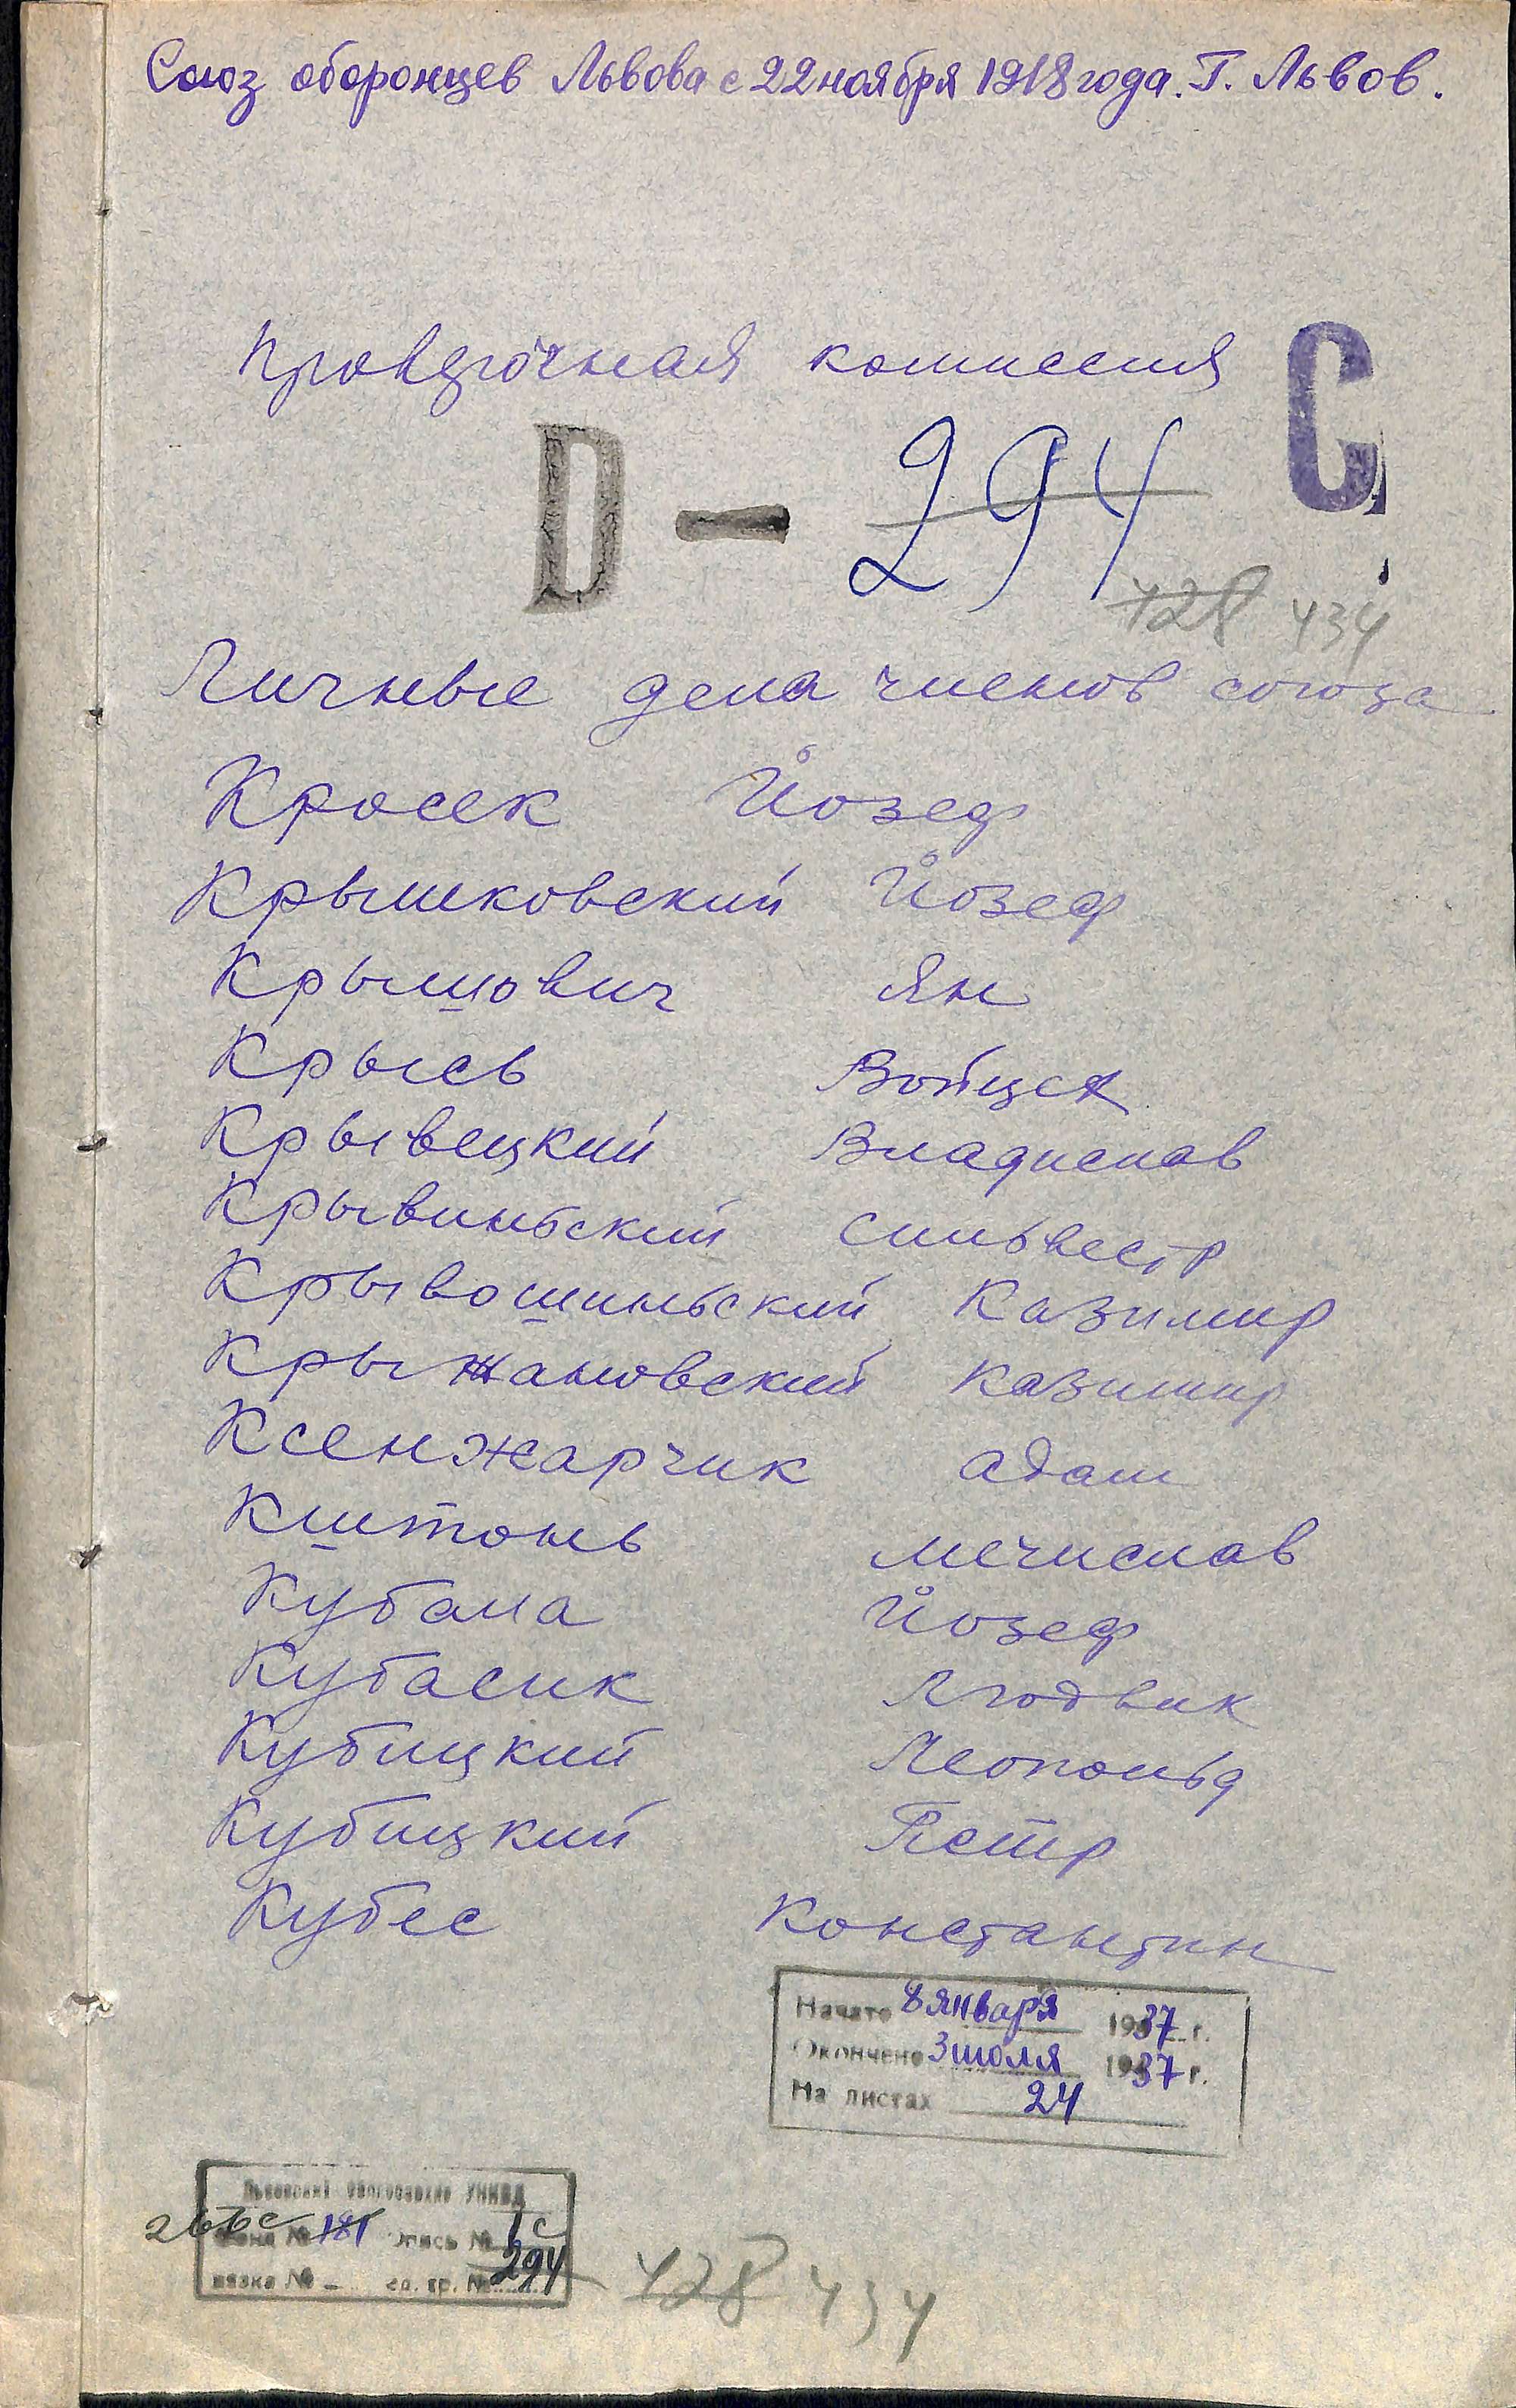 Союз оборонцев Львова с 22 ноября 1918 года. Г. Львов.
Проверочная комиссия
С
D – 294
428 434
Личные дела членов союза
Кросек Йозеф
Крышковский Йозеф
Крышович Ян
Крысь Войцех
Крывецкий Владислав
Крывиньский Сильвестр
Крывошиньский Казимир
Крыжановский Казимир
Ксенжарчик Адам
Кштонь Мечислав
Кубала Йозеф
Кубасик Людвик
Кубицкий Леопольд
Кубицкий Петр
Кубес Константин
Начато 8 января 1937 г.
Окончено 3 июля 1937 г.
На листах 24
Львовский Облгосархив УНКВД
266с Фонд № 181 Опись № 1с
вязка № – ед. хр. № 294
428 434